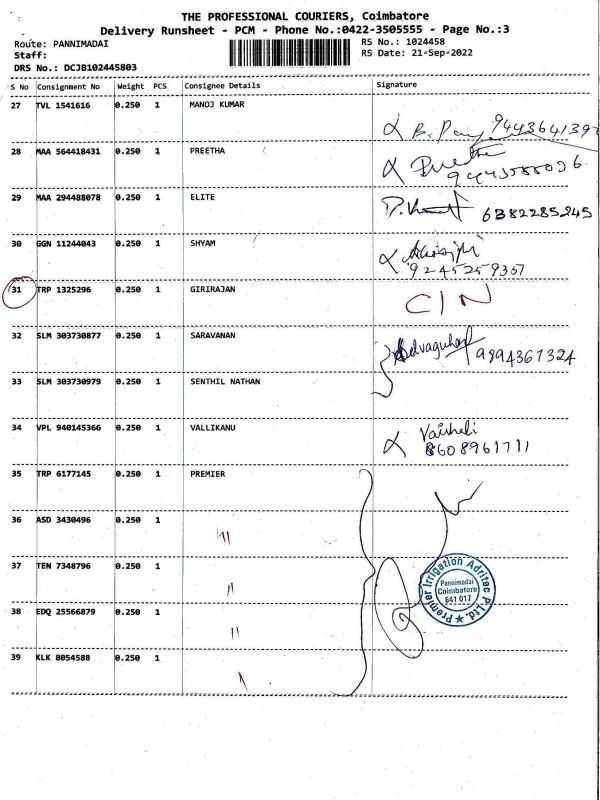 THE PROFESSIONAL COURIERS, Coimbatore
Delivery Runsheet - PCM - Phone No.:0422-3505555 - Page No.:3
Route: PANNIMADAI
RS No.: 1024458
Staff:
RS Date: 21-Sep-2022
DRS No.: DCJB102445803
S No Consignment No Weight PCS Consignee Details Signature
27 TVL 1541616 0.250 1 MANOJ KUMAR
28 MAA 564418431 0.250 1 PREETHA
Preetha
29 MAA 294488078 0.250 1 ELITE
6382285245
30 GGN 11244043 0.250 1 SHYAM
9245259357
31 TRP 1325296 0.250 1 GIRIRAJAN
CIN
32 SLM 303730877 0.250 1 SARAVANAN
9894361324
33 SLM 303730979 0.250 1 SENTHIL NATHAN
34 VPL 940145366 0.250 1 VALLIKANU
Vaisheli
8608961711
35 TRP 6177145 0.250 1 PREMIER
36 ASD 3430496 0.250 1 "
37 TEN 7348796 0.250 1 "
38 EDQ 25566879 0.250 1 "
39 KLK 8054588 0.250 1
Premier Irrigation Adritec P.Ltd.
Pannimadai
Coimbatore
641 017